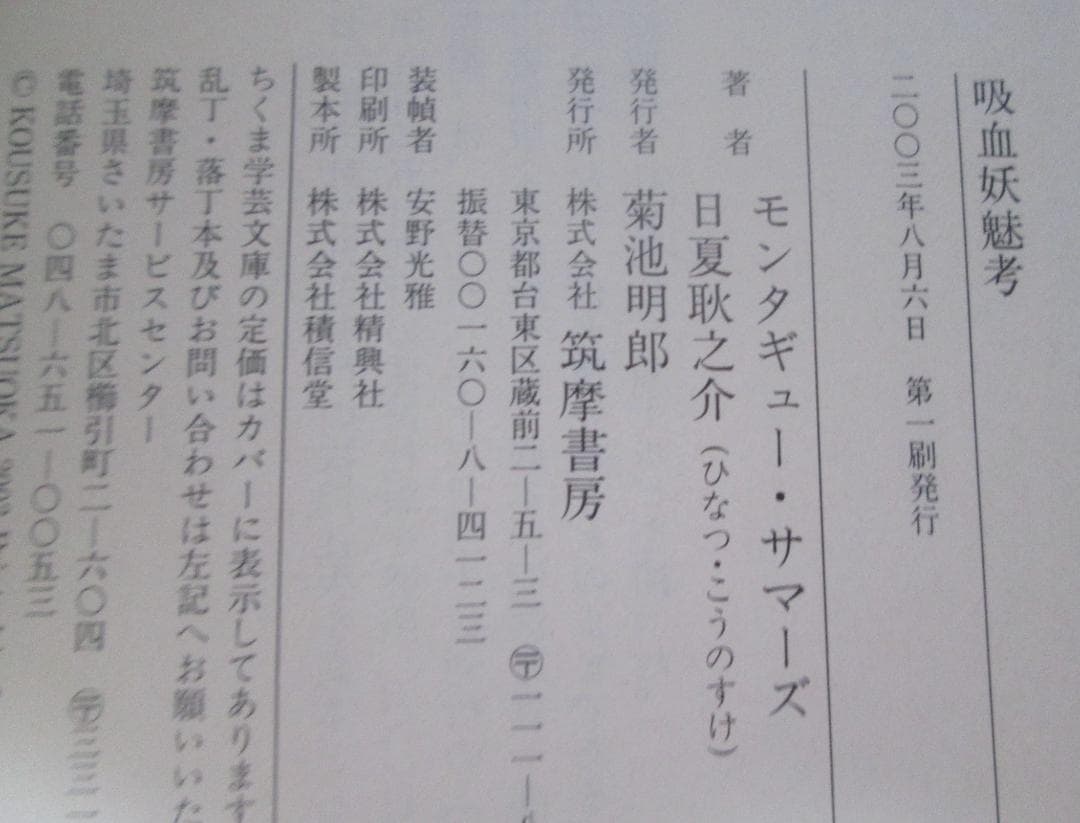 吸血妖魅考
二〇〇三年八月六日　第一刷発行
著　者　モンタギュー・サマーズ
日夏耿之介（ひなつ・こうのすけ）
発行者　菊池明郎
発行所　株式会社　筑摩書房
東京都台東区蔵前二―五―三　〒一一一―
振替〇〇一六〇―八―四一二三
装幀者　安野光雅
印刷所　株式会社精興社
製本所　株式会社積信堂
ちくま学芸文庫の定価はカバーに表示してあります
乱丁・落丁本及びお問い合わせは左記へお願いいた
筑摩書房サービスセンター
埼玉県さいたま市北区櫛引町二―六〇四　〒三三一
電話番号　〇四八―六五一―〇〇五三
© KOUSUKE MATSUOKA